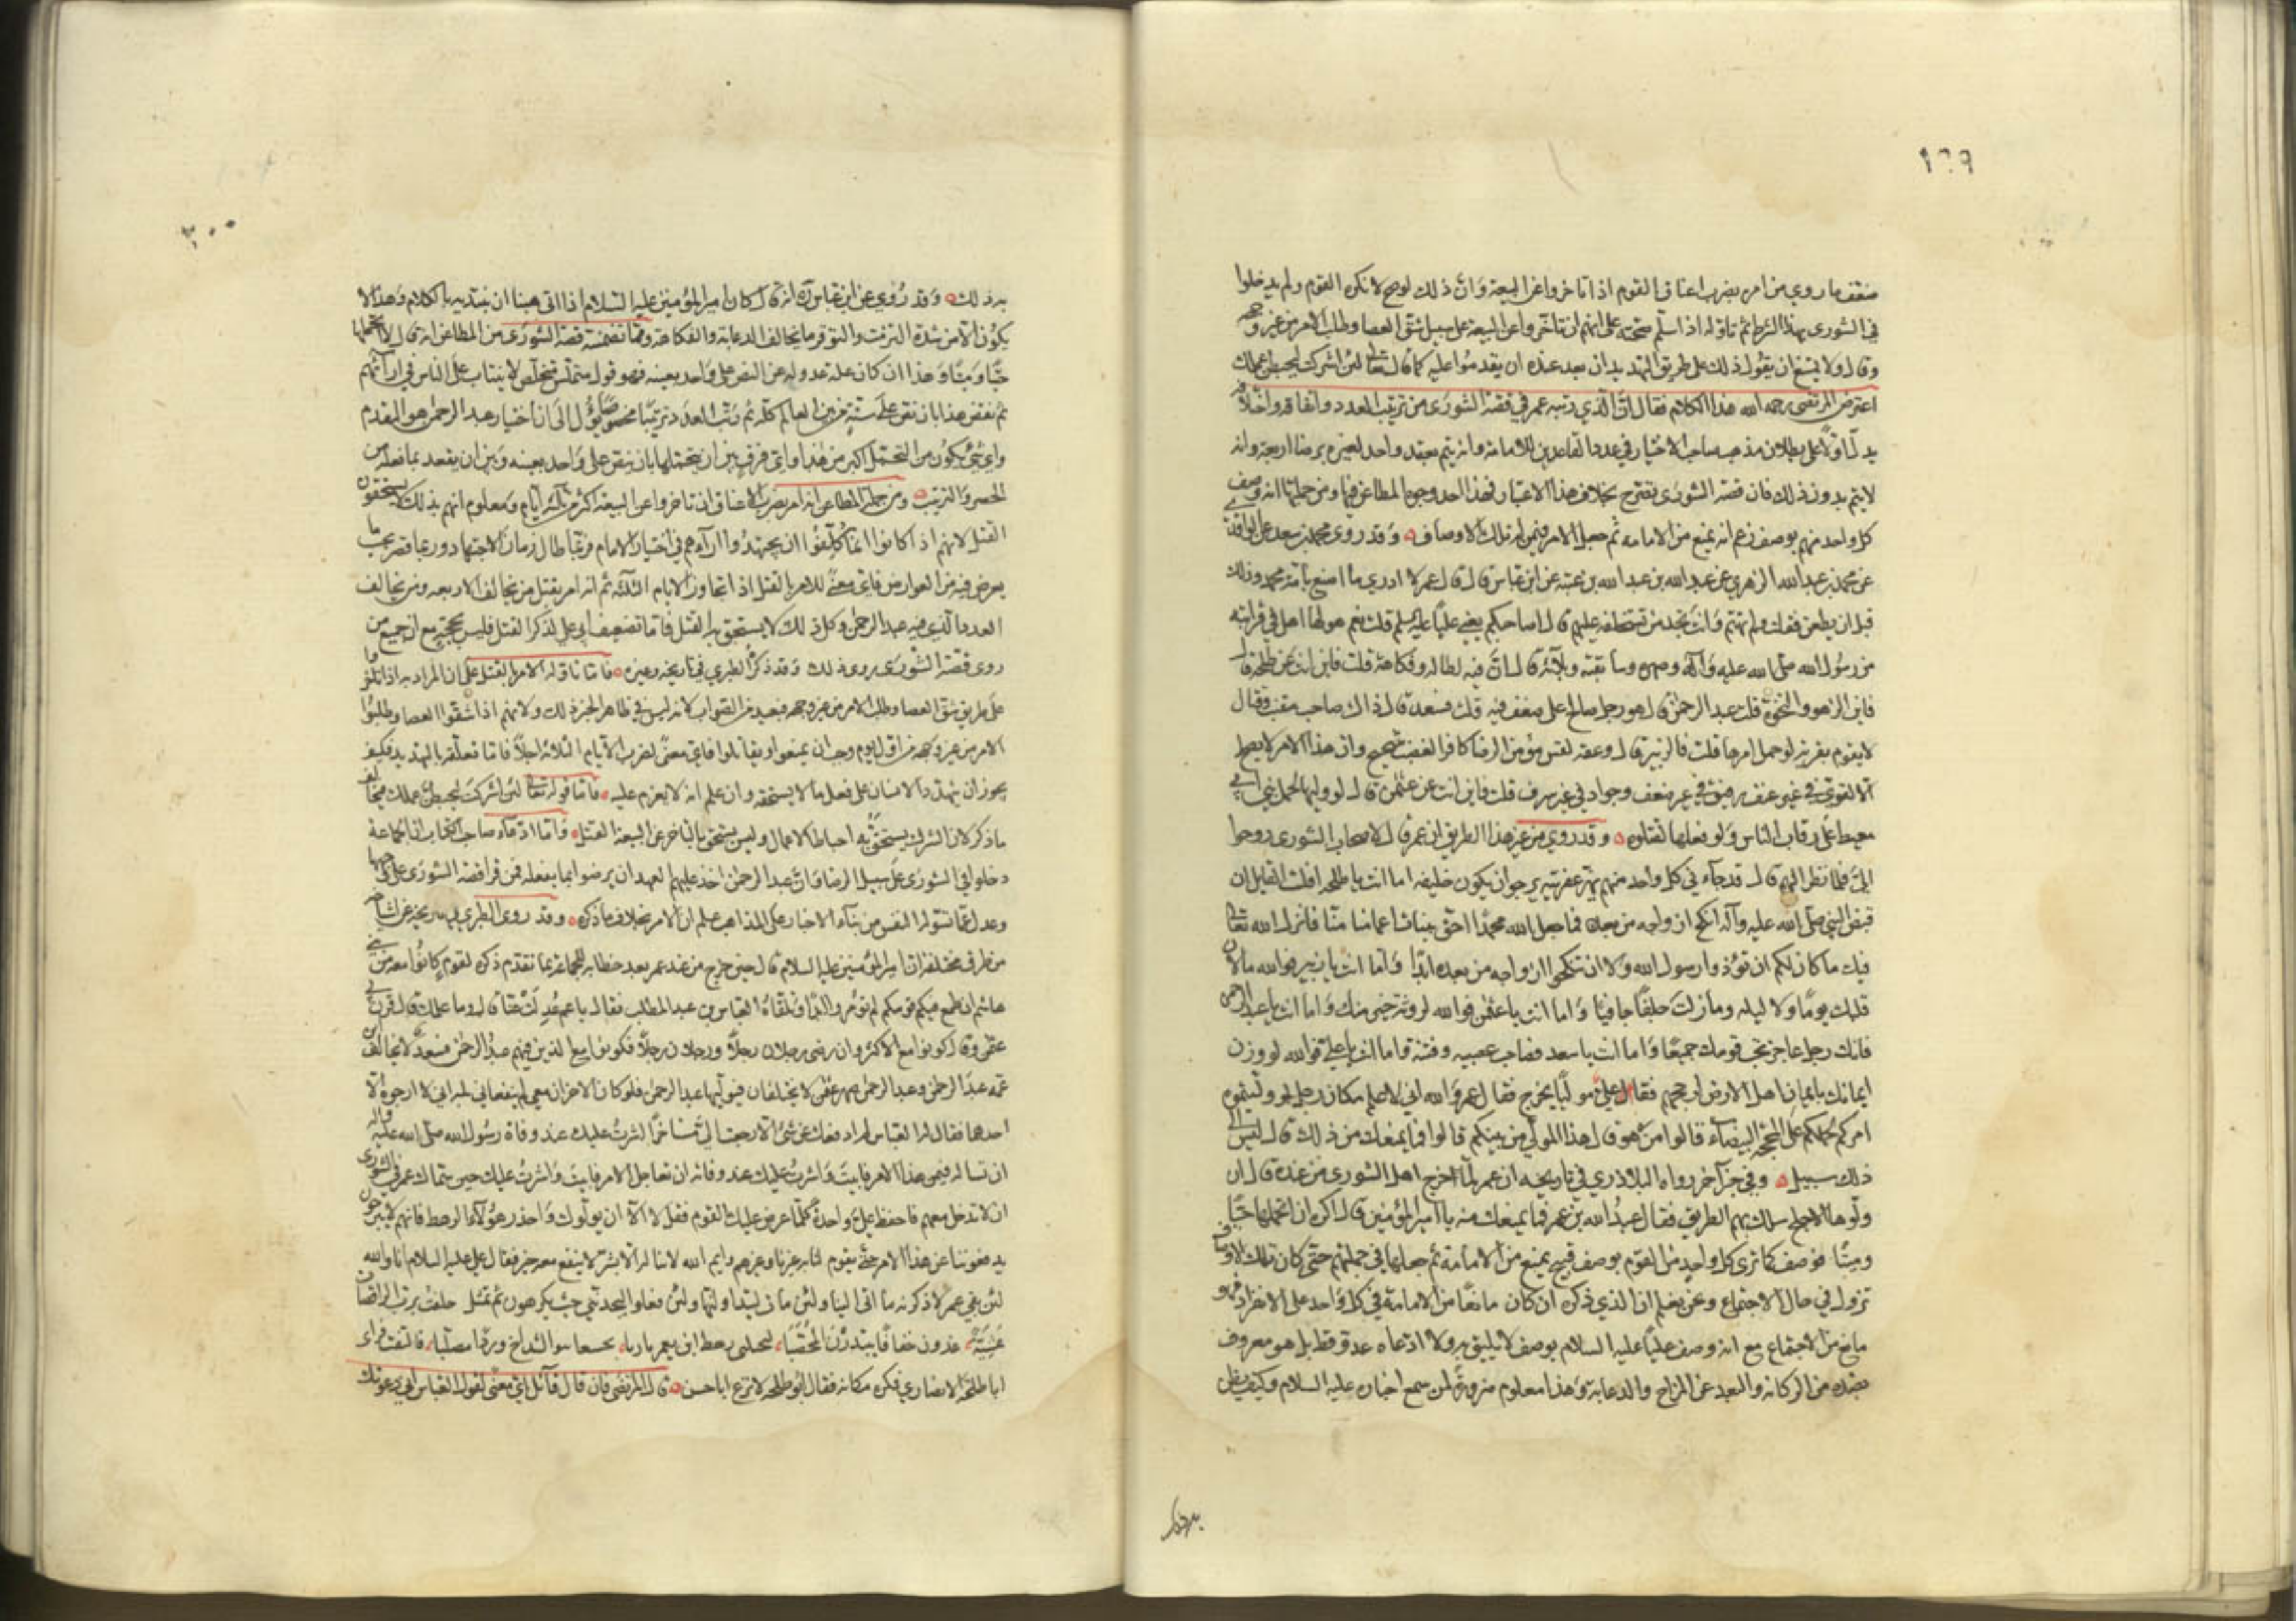 ١٩٩
ضعف ما روي من امره بضرب اعناق القوم اذا تاخروا عن البيعة وان ذلك لو صح لانكره القوم ولم يدخلوا
في الشورى بهذا الشرط ثم تاوله اذا سلم صحته على انهم ان تاخروا عن البيعة على سبيل شق العصا وطلب الامر من غير وجهه
وقال ولا يمتنع ان يقول ذلك على طريق التهديد ان بعد عنده ان يقدموا عليه كما قال تعالى لئن اشركت ليحبطن عملك
اعترض المرتضى رحمه الله هذا الكلام فقال ان الذي رتبه عمر في قصة الشورى من ترتيب العدد واتفاقه واختلافه
يدل اولا على بطلان مذهب اصحاب الاختيار في عدد العاقدين للامامة وانه يتم بعقد واحد لغيره برضا اربعة وانه
لا يتم بدون ذلك فان قصة الشورى تصرح بخلاف هذا الاعتبار فهذا احد وجوه المطاعن فيها ومن جملتها انه وصف
كل واحد منهم بوصف زعم انه يمنع من الامامة ثم جعل الامر فيمن له تلك الاوصاف وقد روى محمد بن سعد عن الواقدي
عن محمد بن عبد الله الزهري عن عبد الله بن عبد الله بن عتبة عن ابن عباس قال قال عمر لا ادري ما اصنع بامة محمد وذلك
قبل ان يطعن فقلت ولم تهتم وانت تجد من تستخلفه عليهم قال اصاحبكم يعني عليا عليه السلم قلت نعم هو لها اهل في قرابته
من رسول الله صلى الله عليه وآله وصهره وسابقته وبلائه قال ان فيه بطالة وفكاهة قلت فاين انت عن طلحة قال
فاين الزهو والنخوة قلت عبد الرحمن قال هو رجل صالح على ضعف فيه قلت فسعد قال ذاك صاحب مقنب وقتال
لا يقوم بقرية لو حمل امرها قلت فالزبير قال وعقة لقس مؤمن الرضا كافر الغضب شحيح وان هذا الامر لا يصلح
الا لقوي في غير عنف رفيق في غير ضعف وجواد في غير سرف قلت فاين انت عن عثمن قال لو وليها لحمل بني ابي
معيط على رقاب الناس ولو فعلها لقتلوه وقد روي من غير هذا الطريق ان عمر قال لاصحاب الشورى روحوا
الي فلما نظر اليهم قال قد جاءني كل واحد منهم يهز عفريته يرجو ان يكون خليفة اما انت يا طلحة افلست القايل ان
قبض النبي صلى الله عليه وآله انكح ازواجه من بعده فما جعل الله محمدا احق ببنات اعمامنا منا فانزل الله تعالى
فيك ما كان لكم ان تؤذوا رسول الله ولا ان تنكحوا ازواجه من بعده ابدا واما انت يا زبير فوالله ما لان
قلبك يوما ولا ليلة وما زلت جلفا جافيا واما انت يا عثمن فوالله لروثة خير منك واما انت يا عبد الرحمن
فانك رجل عاجز تحب قومك جميعا واما انت يا سعد فصاحب عصبية وفتنة واما انت يا علي فوالله لو وزن
ايمانك بايمان اهل الارض لرجحهم فقام علي موليا يخرج فقال عمر والله اني لاعلم مكان رجل لو وليتموه
امركم لحملكم على المحجة البيضاء قالوا من هو قال هذا المولي من بينكم قالوا فما يمنعك من ذلك قال ليس الى
ذلك سبيل وفي خبر آخر رواه البلاذري في تاريخه ان عمر لما خرج اهل الشورى من عنده قال ان
ولوها الاجلح سلك بهم الطريق فقال عبد الله بن عمر فما يمنعك منه يا امير المؤمنين قال اكره ان اتحملها حيا
وميتا فوصف كما ترى كل واحد من القوم بوصف قبيح يمنع من الامامة ثم جعلها في جملتهم حتى كان تلك الاوصاف
تزول في حال الاجتماع ونحن نعلم ان الذي ذكره ان كان مانعا من الامامة في كل واحد على الانفراد فهو
مانع من الاجتماع مع انه وصف عليا عليه السلام بوصف لا يليق به ولا ادعاه عدو قط بل هو معروف
بضده من الركانة والبعد عن المزاح والدعابة وهذا معلوم ضرورة لمن سمع اخباره عليه السلام وكيف يظن
به ذلك
٢٠٠
به ذلك وقد روي عن ابن عباس ره انه قال كان امير المؤمنين عليه السلام اذا اتى هبنا ان نبتديه بالكلام وهذا لا
يكون الا من شدة التزمت والتوقر وما يخالف الدعابة والفكاهة ومما تضمنته قصة الشورى من المطاعن انه قال لا اتحملها
حيا وميتا وهذا ان كان علة عدوله عن النص على واحد بعينه فهو قول متملس متخلص لا يفتات على الناس في ارائهم
ثم نقض هذا بان نص على ستة من بين العالم كله ثم رتب العدد ترتيبا مخصوصا يؤل الى ان اختيار عبد الرحمن هو المقدم
واي شيء يكون من التحمل اكبر من هذا واي فرق بين ان يتحملها بان ينص على واحد بعينه وبين ان يفعل ما فعله من
الحصر والترتيب ومن جملة المطاعن انه امر بضرب الاعناق ان تاخروا عن البيعة اكثر من ثلثة ايام ومعلوم انهم بذلك لا يستحقون
القتل لانهم اذا كانوا انما كلفوا ان يجتهدوا اراءهم في اختيار الامام فربما طال زمان الاجتهاد وربما قصر بحسب ما
يعرض فيه من العوارض فاي معنى للامر بالقتل اذا تجاوز الايام الثلثة ثم انه امر بقتل من يخالف الاربعة ومن يخالف
العدد الذي فيه عبد الرحمن وكل ذلك لا يستحق به القتل فاما تضعيف ابي علي لذكر القتل فليس بحجة مع ان جميع من
روى قصة الشورى روى ذلك وقد ذكره الطبري في تاريخه وغيره فاما تاوله الامر بالقتل على ان المراد به اذا تاخروا
على طريق شق العصا وطلب الامر من غير وجهه فبعيد من الصواب لانه ليس في ظاهر الخبر ذلك ولانهم اذا شقوا العصا وطلبوا
الامر من غير وجهه من اول يوم وجب ان يمنعوا ويقاتلوا فاي معنى لضرب الايام الثلاثة اجلا فاما تعلقه بالتهديد فكيف
يجوز ان يتهدد الانسان على فعل ما لا يستحقه وان علم انه لا يعزم عليه فاما قوله تعالى لئن اشركت ليحبطن عملك فيخالف
ما ذكر لان الشرك يستحق به احباط الاعمال وليس يستحق بالتاخر عن البيعة القتل فاما ادعاء صاحب الكتاب ان الجماعة
دخلوا في الشورى على سبيل الرضا وان عبد الرحمن اخذ عليهم العهد ان يرضوا بما يفعله فمن قرا قصة الشورى على وجهها
وعدل عما تسوله النفس من بناء الاخبار على المذاهب علم ان الامر بخلاف ما ذكره وقد روى الطبري في تاريخه عن اشياخه
من طرق مختلفة ان امير المؤمنين عليه السلام قال حين خرج من عند عمر بعد خطابه للجماعة بما تقدم ذكره لقوم كانوا معه من بني
هاشم ان طمع فيكم قومكم لم تؤمروا ابدا وتلقاه العباس بن عبد المطلب فقال يا عم عدلت عنا قال وما علمك قال قرن بي
عثمن وقال كونوا مع الاكثر وان رضي رجلان رجلا ورجلان رجلا فكونوا مع الذين فيهم عبد الرحمن فسعد لا يخالف ابن
عمه عبد الرحمن وعبد الرحمن صهر عثمن لا يختلفان فيوليها عبد الرحمن فلو كان الاخران معي لم ينفعاني بله اني لا ارجو الا
احدهما فقال له العباس لم ادفعك عن شيء الا رجعت الي مستاخرا اشرت عليك عند وفاة رسول الله صلى الله عليه وآله
ان تساله فيمن هذا الامر فابيت واشرت عليك عند وفاته ان تعاجل الامر فابيت واشرت عليك حين سماك عمر في الشورى
ان لا تدخل معهم فاحفظ علي واحدة كلما عرض عليك القوم فقل لا الا ان يولوك واحذر هؤلاء الرهط فانهم لا يبرحون
يدفعوننا عن هذا الامر حتى يقوم لنا به غيرنا وغيرهم وايم الله لا تناله الا بشر لا ينفع معه خير فقال علي عليه السلام اما والله
لئن بقي عمر لاذكرنه ما اتى الينا ولئن مات ليتداولنها ولئن فعلوا ليجدنني حيث يكرهون ثم تمثل حلفت برب الراقصات
عشية غدون خفافا يبتدرن المحصبا ليجتلبن رهط ابن يعمر وردا مصلبا فالتفت فراى
ابا طلحة الانصاري فكره مكانه فقال ابو طلحة لا ترع ابا حسن قال المرتضى فان قال قائل اي معنى لقول العباس اني دعوتك